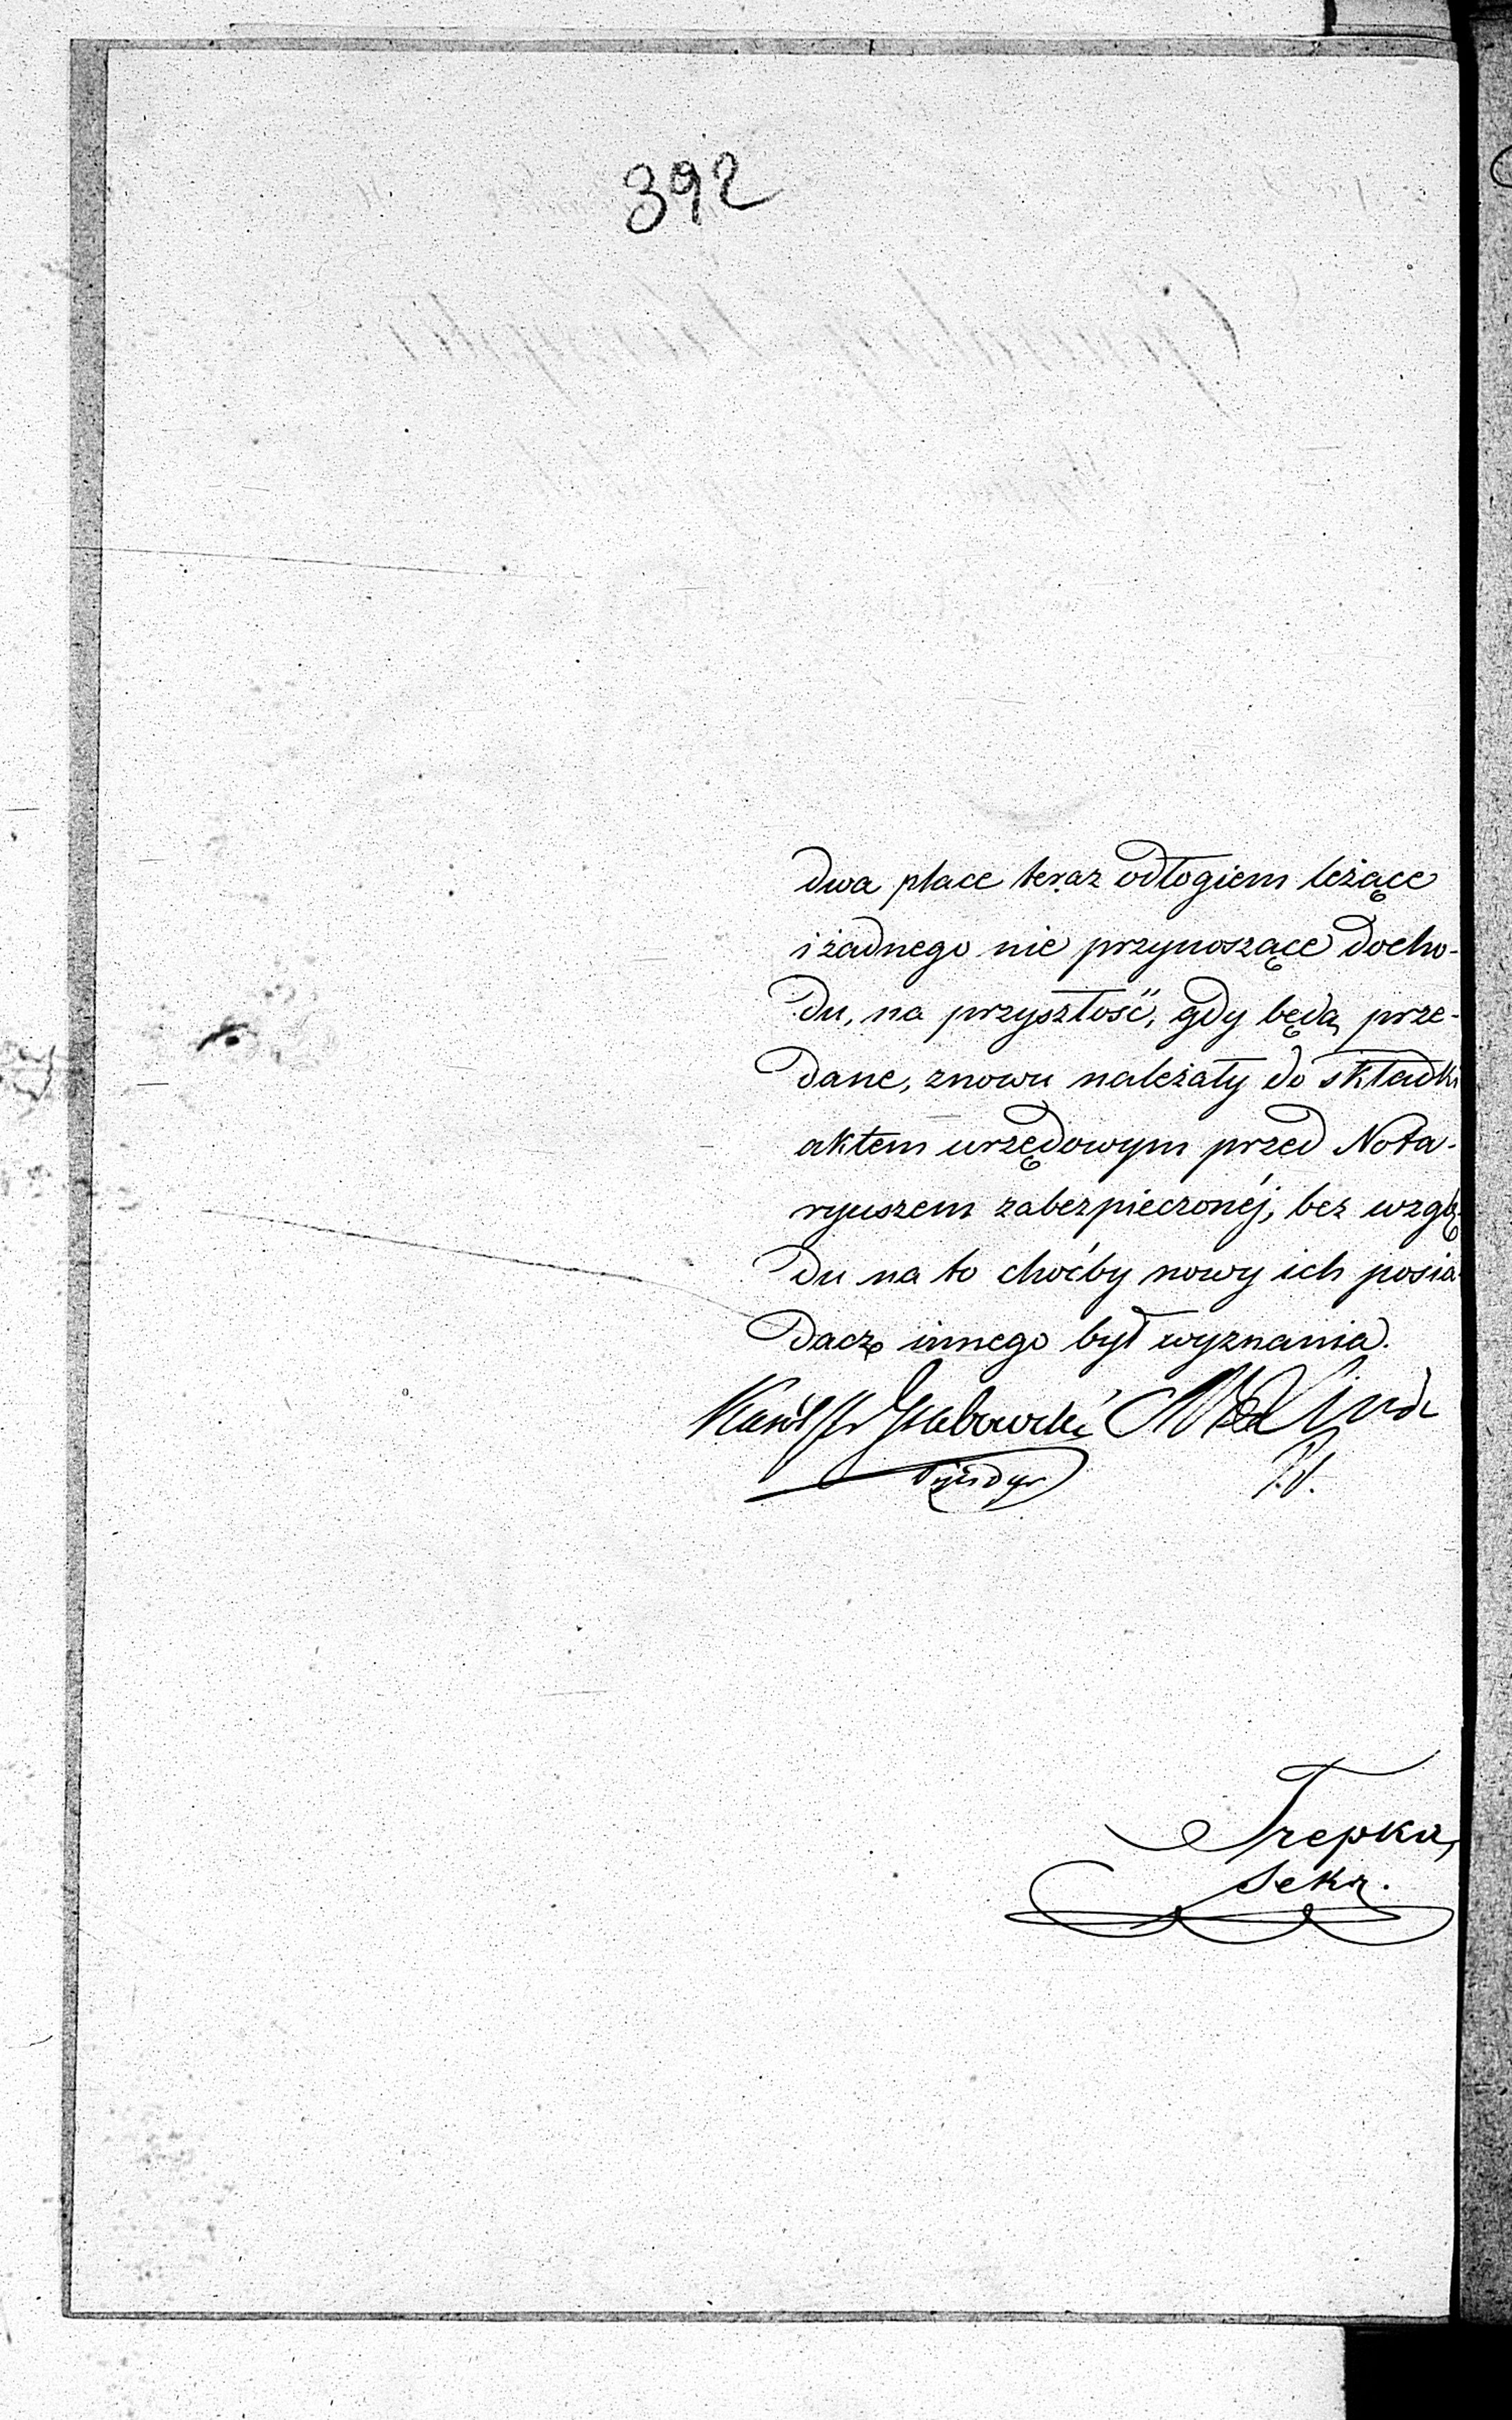 392
dwa place teraz odłogiem leżące
i żadnego nie przynoszące docho-
du, na przyszłość, gdy będą prze-
dane, znowu należały do składki
aktem urzędowym przed Nota-
ryuszem zabezpieczonéj, bez wzglę-
du na to choćby nowy ich posia-
dacz innego był wyznania.
Grabowski
Trepka,
Sekr.